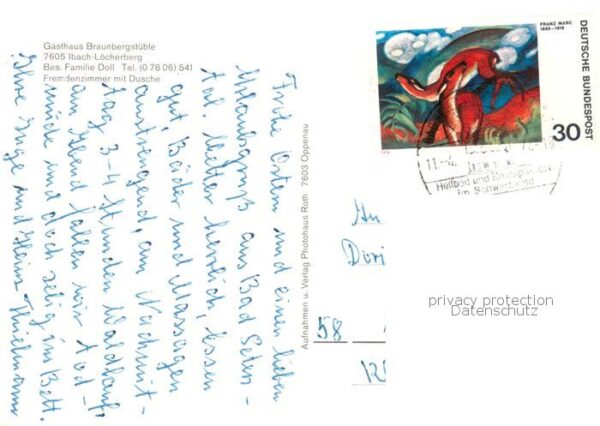 Gasthaus Braunbergstüble
7605 Ibach-Löcherberg
Bes. Familie Doll Tel. (0 78 06) 541
Fremdenzimmer mit Dusche
Frohe Ostern und einen lieben
Urlaubsgruß aus Bad Selzn-
hal. Wetter herrlich, Essen
gut, Bäder und Massagen
anstrengend, am Nachmit-
tag 3-4 Stunden Waldlauf,
am Abend fallen wir tod-
müde und doch selig ins Bett.
Ihre Inge und Heinz
Aufnahmen u. Verlag Photohaus Roth 7603 Oppenau
FRANZ MARC
1880-1916
DEUTSCHE BUNDESPOST
30
11.-4.
Heilbad und
im Schwarzwald
An
Dori
58
privacy protection
Datenschutz